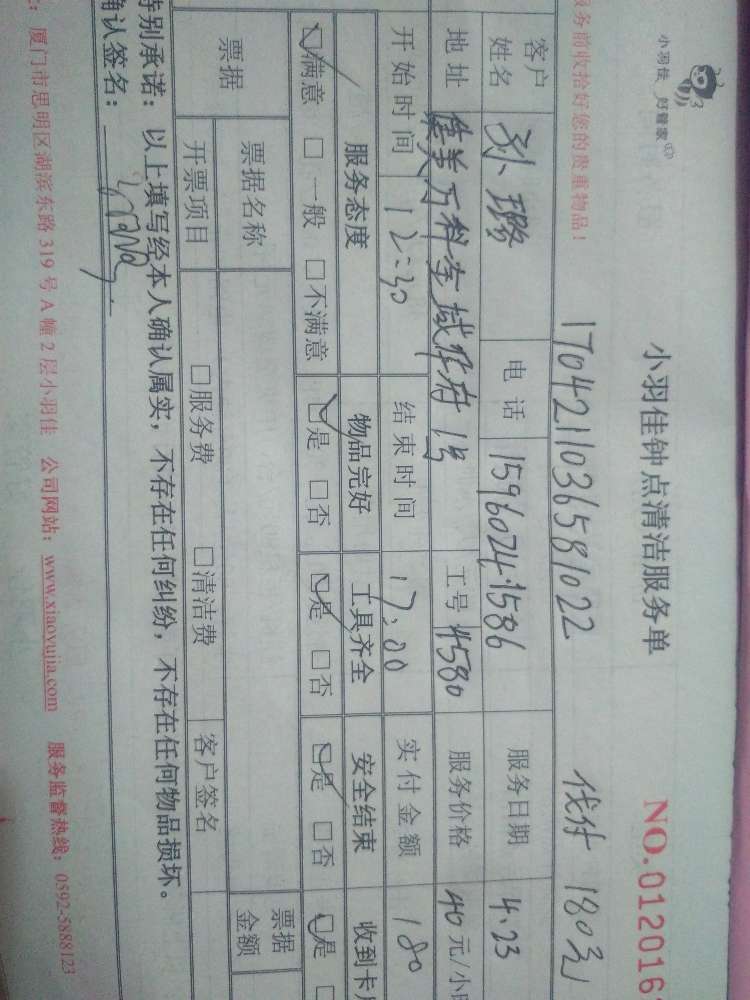 小羽佳 好管家
小羽佳钟点清洁服务单
NO.012016
服务前收拾好您的贵重物品！
1704211036581022
180元
客户姓名 孙璐 电话 15960241586 服务日期 4.23
地址 万科金域华府1号 工号 4580 服务价格 40元/小
开始时间 12:30 结束时间 17:00 实付金额 180
服务态度 物品完好 工具齐全 安全结束 收到卡
☑满意 □一般 □不满意 ☑是 □否 ☑是 □否 ☑是 □否 ☑是 □
票据 票据名称 票据金额
开票项目 □服务费 □清洁费 客户签名
特别承诺：以上填写经本人确认属实，不存在任何纠纷，不存在任何物品损坏。
确认签名：
厦门市思明区湖滨东路319号A幢2层小羽佳 公司网站：www.xiaoyujia.com 服务监督热线：0592-5888123